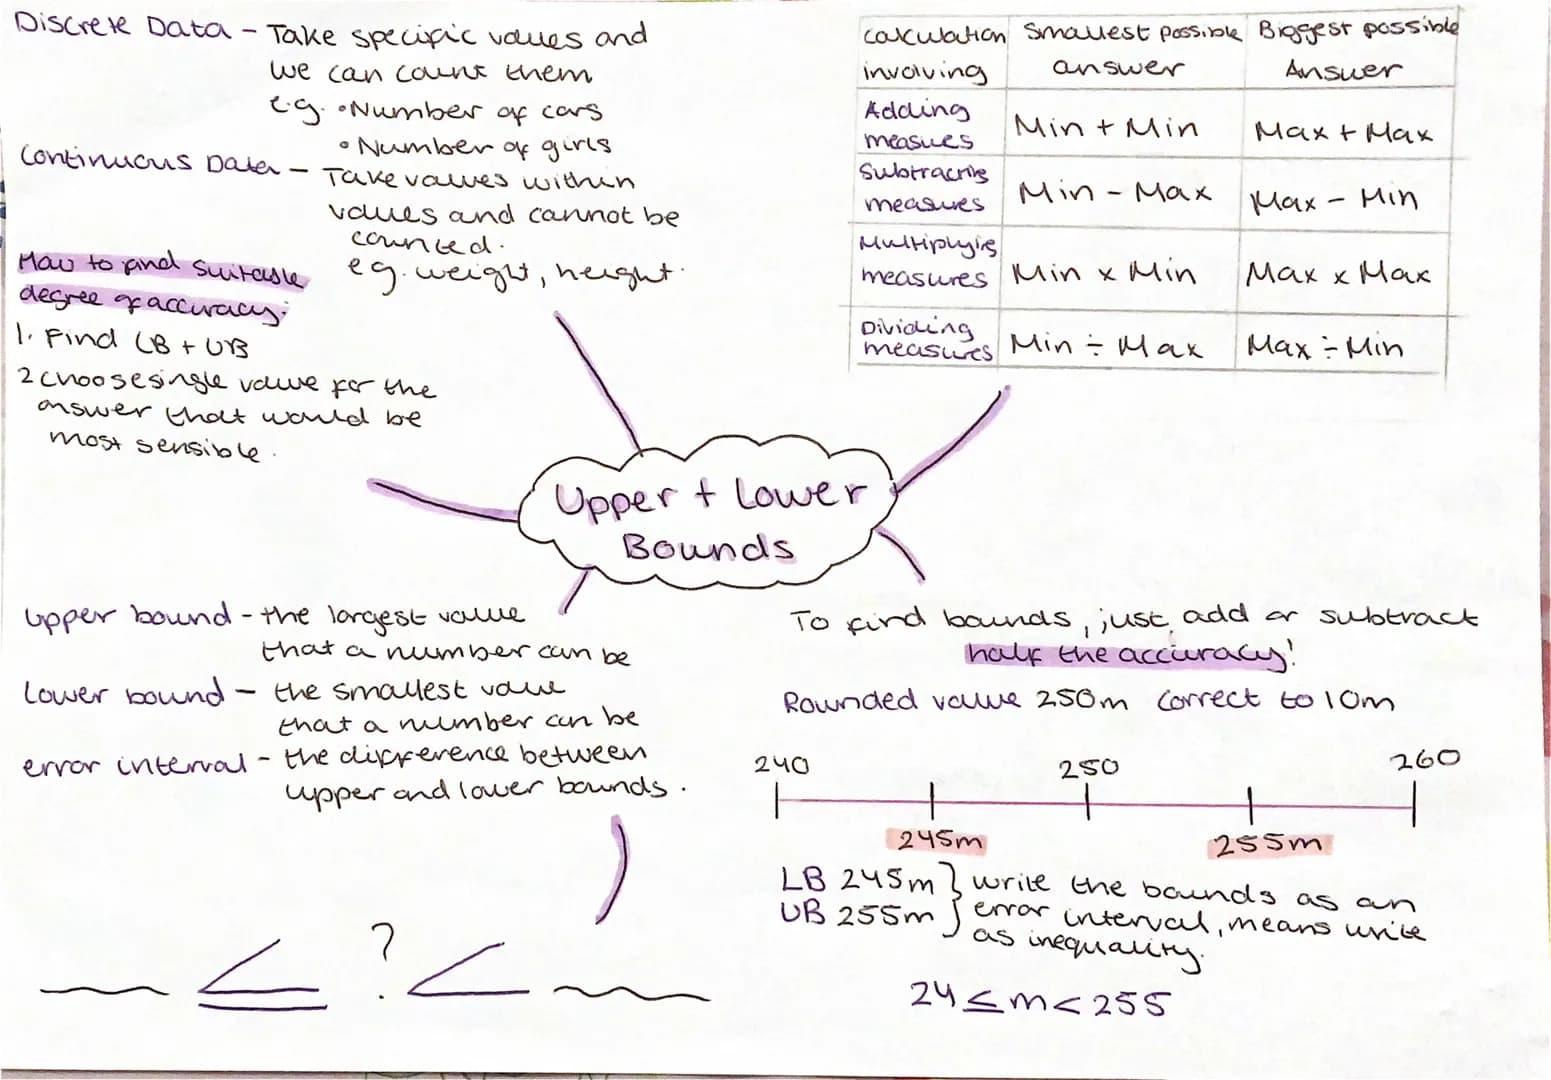 Discrete Data - Take specific values and
we can count them
e.g. • Number of cars
• Number of girls
Continuous Data - Take values within
values and cannot be
counted.
eg. weight, height.
How to find suitable
degree of accuracy:
1. Find LB + UB
2 choose single value for the
answer that would be
most sensible.
calculation involving
Smallest possible answer
Biggest possible Answer
Adding measures
Min + Min
Max + Max
Subtracting measures
Min - Max
Max - Min
Multiplying measures
Min x Min
Max x Max
Dividing measures
Min ÷ Max
Max ÷ Min
Upper + Lower
Bounds
Upper bound - the largest value
that a number can be
Lower bound - the smallest value
that a number can be
error interval - the difference between
upper and lower bounds.
≤ ? <
To find bounds, just add or subtract
half the accuracy!
Rounded value 250m correct to 10m
240 250 260
245m 255m
LB 245m } write the bounds as an
UB 255m } error interval, means write
as inequality.
24 ≤ m < 255